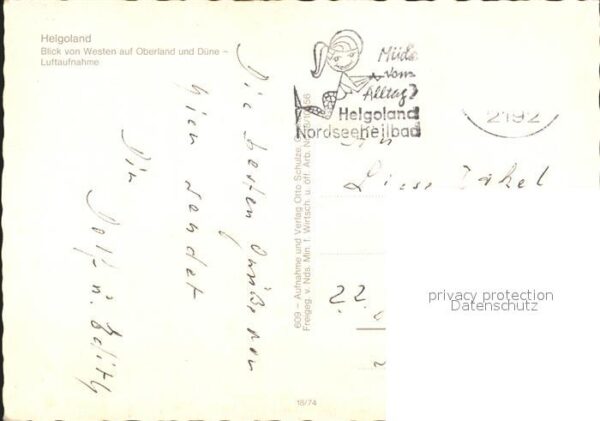 Helgoland
Blick von Westen auf Oberland und Düne –
Luftaufnahme
Müde
vom
Alltag?
Helgoland
Nordseeheilbad
2192
Die besten Grüße von
hier sendet
Dir
Rolf u. Edith
An
609 – Aufnahme und Verlag Otto Schulze,
Freigeg. v. Nds. Min. f. Wirtsch. u. öff. Arb. Nr.
22.
18/74
privacy protection
Datenschutz